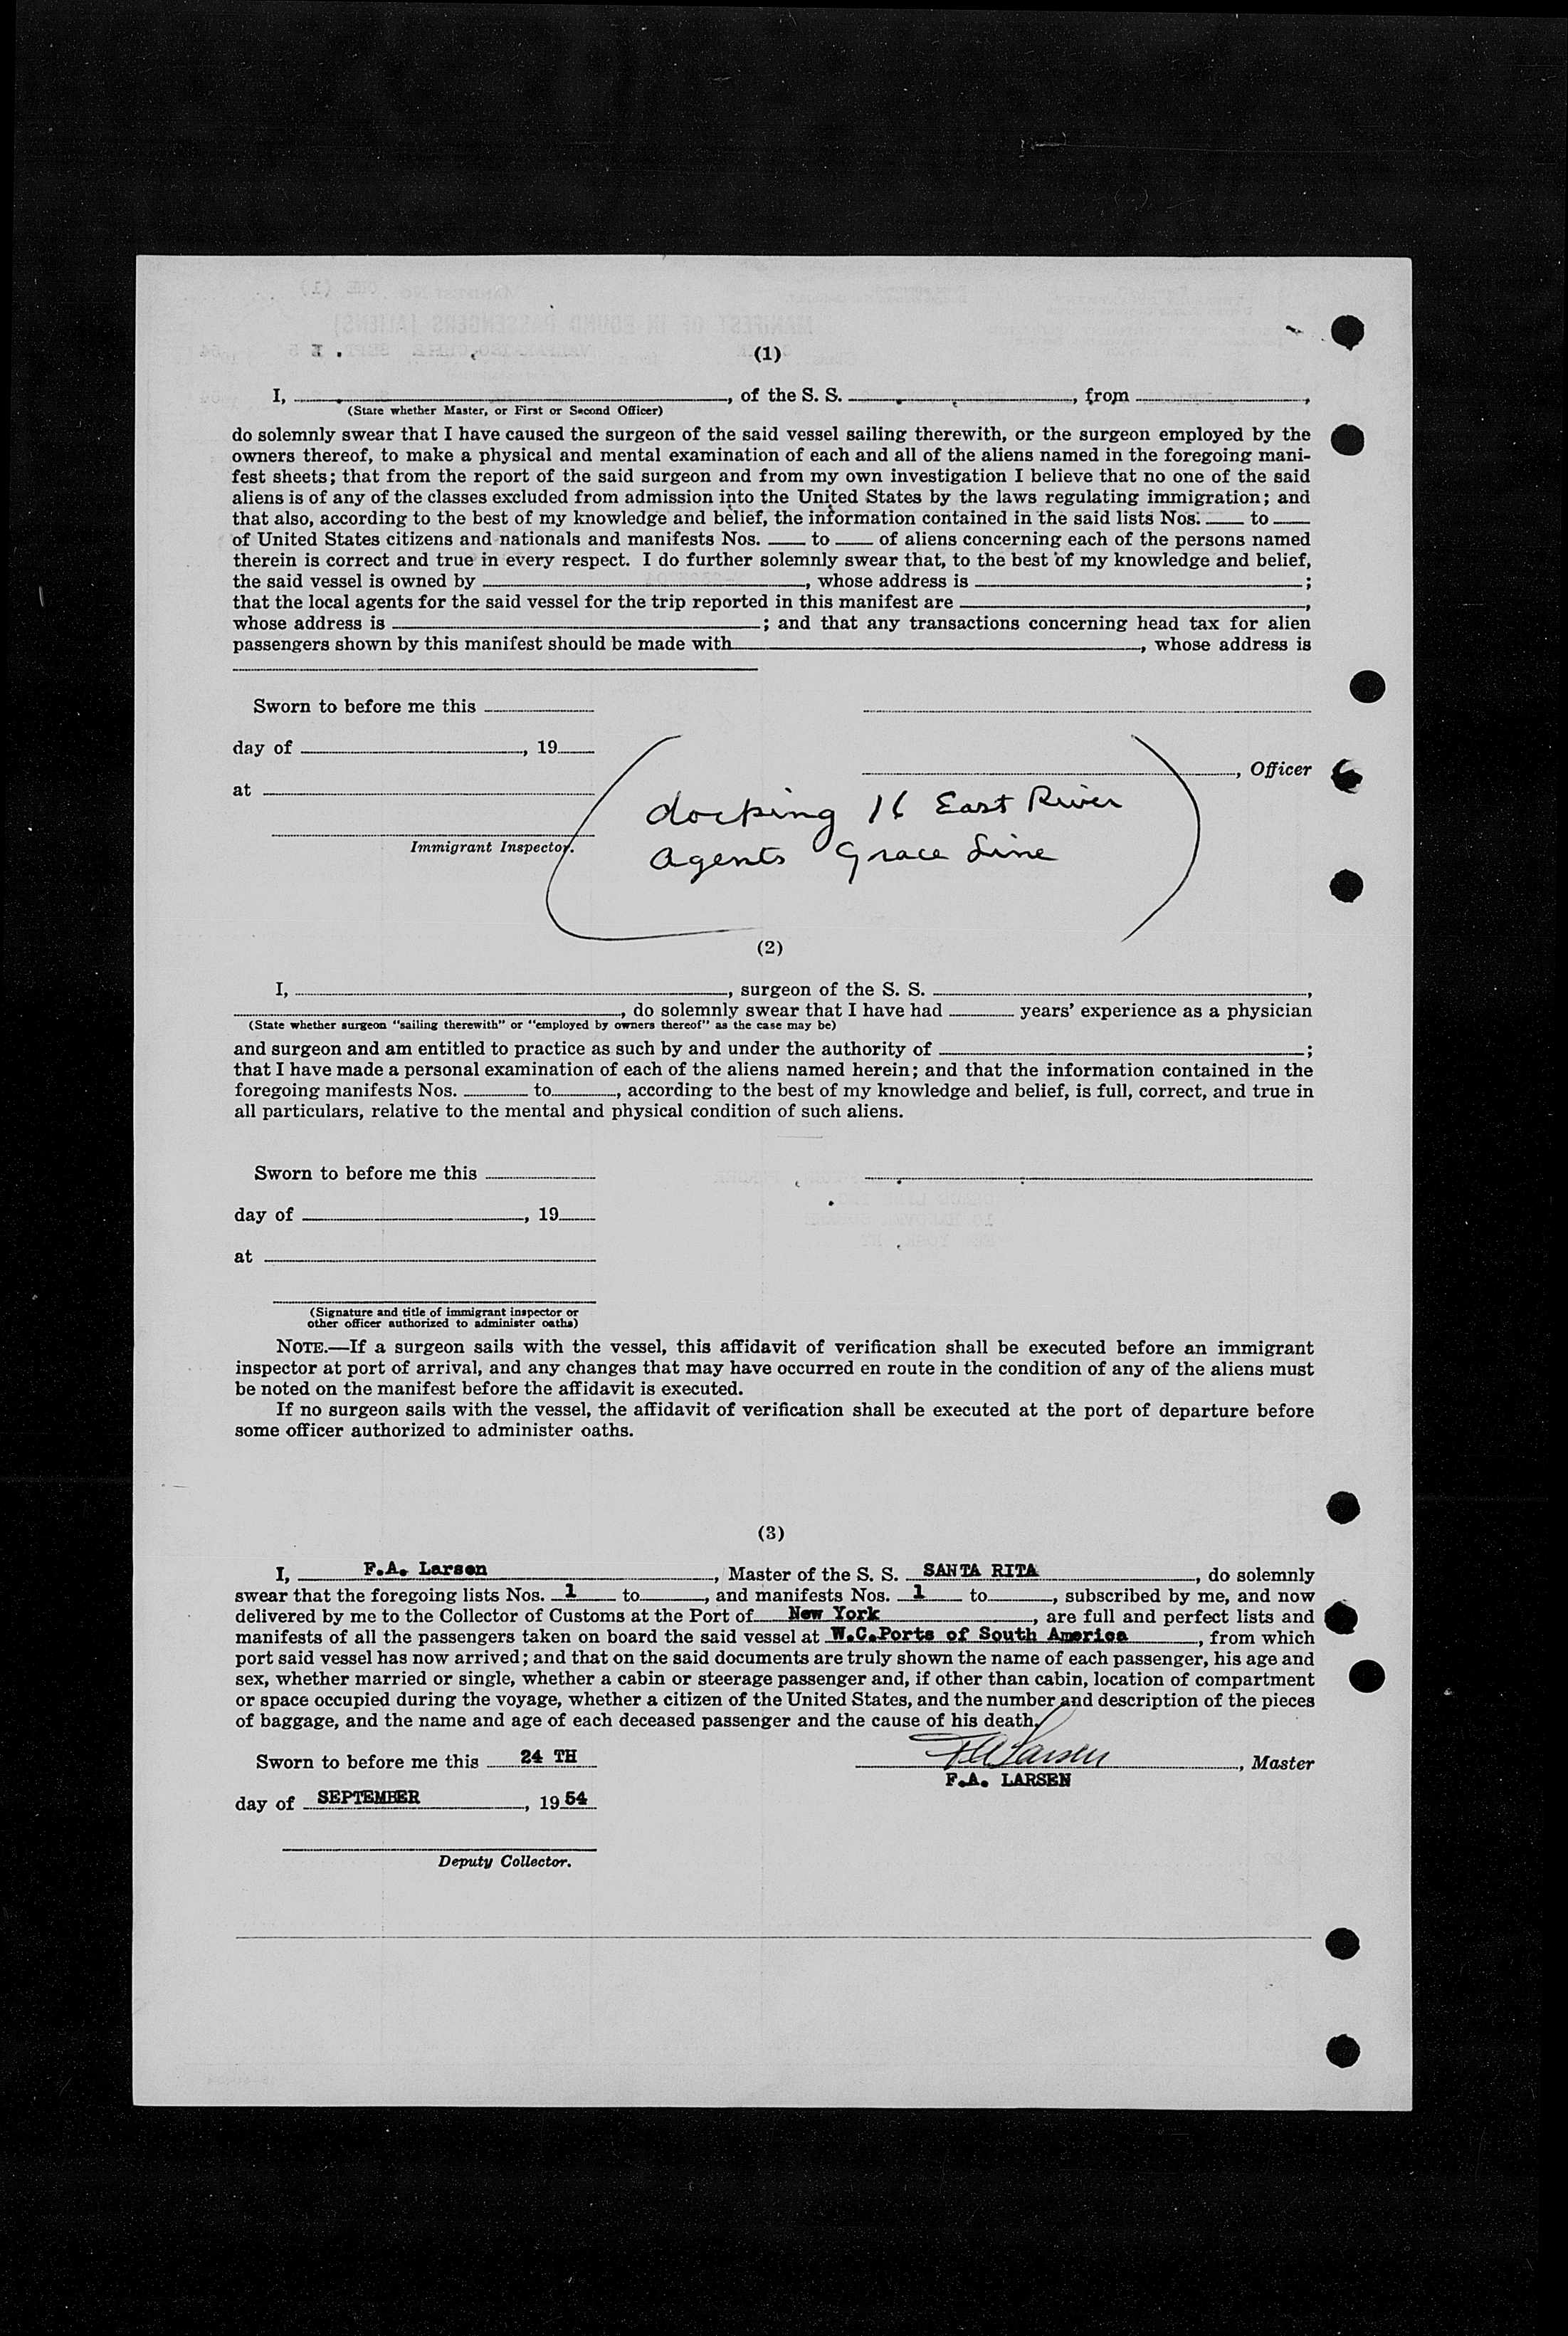 (1)
I, , of the S. S. , from ,
(State whether Master, or First or Second Officer)
do solemnly swear that I have caused the surgeon of the said vessel sailing therewith, or the surgeon employed by the
owners thereof, to make a physical and mental examination of each and all of the aliens named in the foregoing mani-
fest sheets; that from the report of the said surgeon and from my own investigation I believe that no one of the said
aliens is of any of the classes excluded from admission into the United States by the laws regulating immigration; and
that also, according to the best of my knowledge and belief, the information contained in the said lists Nos. to
of United States citizens and nationals and manifests Nos. to of aliens concerning each of the persons named
therein is correct and true in every respect. I do further solemnly swear that, to the best of my knowledge and belief,
the said vessel is owned by , whose address is ;
that the local agents for the said vessel for the trip reported in this manifest are ,
whose address is ; and that any transactions concerning head tax for alien
passengers shown by this manifest should be made with , whose address is
Sworn to before me this
day of , 19
, Officer
at
Immigrant Inspector.
docking 16 East River
agents Grace Line
(2)
I, , surgeon of the S. S. ,
, do solemnly swear that I have had years' experience as a physician
(State whether surgeon "sailing therewith" or "employed by owners thereof" as the case may be)
and surgeon and am entitled to practice as such by and under the authority of ;
that I have made a personal examination of each of the aliens named herein; and that the information contained in the
foregoing manifests Nos. to , according to the best of my knowledge and belief, is full, correct, and true in
all particulars, relative to the mental and physical condition of such aliens.
Sworn to before me this
day of , 19
at
(Signature and title of immigrant inspector or
other officer authorized to administer oaths)
NOTE.—If a surgeon sails with the vessel, this affidavit of verification shall be executed before an immigrant
inspector at port of arrival, and any changes that may have occurred en route in the condition of any of the aliens must
be noted on the manifest before the affidavit is executed.
If no surgeon sails with the vessel, the affidavit of verification shall be executed at the port of departure before
some officer authorized to administer oaths.
(3)
I, F.A. Larsen , Master of the S. S. SANTA RITA , do solemnly
swear that the foregoing lists Nos. 1 to , and manifests Nos. 1 to , subscribed by me, and now
delivered by me to the Collector of Customs at the Port of New York , are full and perfect lists and
manifests of all the passengers taken on board the said vessel at W.C.Ports of South America , from which
port said vessel has now arrived; and that on the said documents are truly shown the name of each passenger, his age and
sex, whether married or single, whether a cabin or steerage passenger and, if other than cabin, location of compartment
or space occupied during the voyage, whether a citizen of the United States, and the number and description of the pieces
of baggage, and the name and age of each deceased passenger and the cause of his death.
Sworn to before me this 24 TH
FA Larsen , Master
F.A. LARSEN
day of SEPTEMBER , 1954
Deputy Collector.